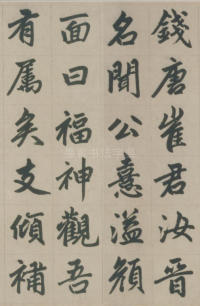 錢唐崔君汝晉
名聞公憙溢顏
面曰福神觀吾
有屬矣支傾補